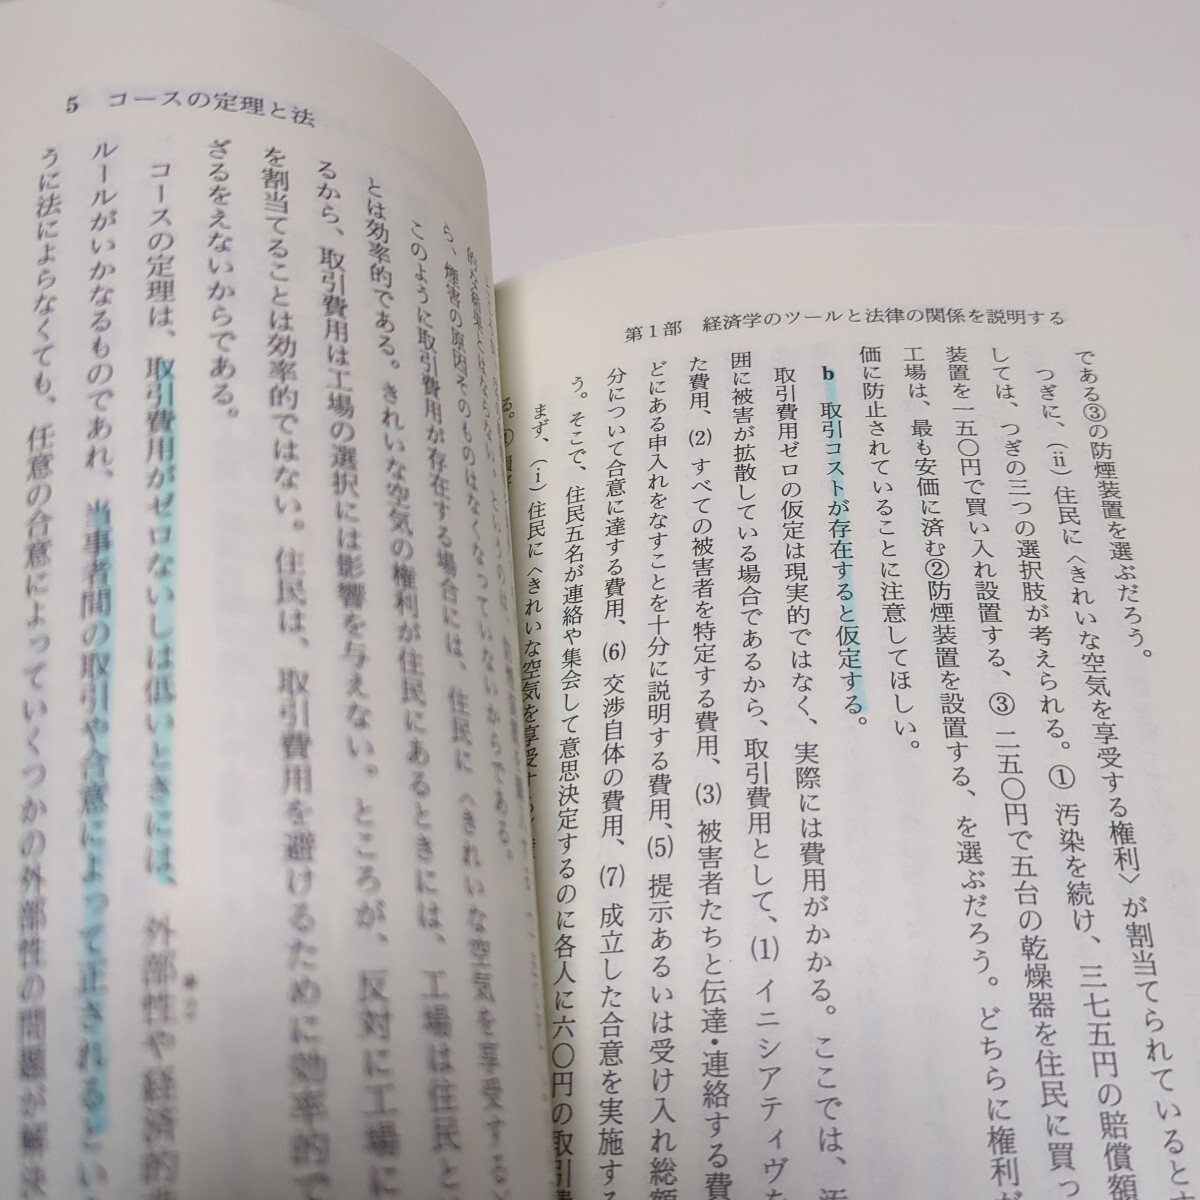 第1部 経済学のツールと法律の関係を説明する
である③の防煙装置を選ぶだろう。
つぎに、(ⅱ)住民に〈きれいな空気を享受する権利〉が割当てられていると
しては、つぎの三つの選択肢が考えられる。① 汚染を続け、三七五円の賠償額
装置を一五〇円で買い入れ設置する、③ 二五〇円で五台の乾燥器を住民に買っ
工場は、最も安価に済む②防煙装置を設置する、を選ぶだろう。どちらに権利が
価に防止されていることに注意してほしい。
b 取引コストが存在すると仮定する。
取引費用ゼロの仮定は現実的ではなく、実際には費用がかかる。ここでは、汚
囲に被害が拡散している場合であるから、取引費用として、(1) イニシアティヴを
た費用、(2) すべての被害者を特定する費用、(3) 被害者たちと伝達・連絡する費
どにある申入れをなすことを十分に説明する費用、(5) 提示あるいは受け入れ総額
分について合意に達する費用、(6) 交渉自体の費用、(7) 成立した合意を実施す
う。そこで、住民五名が連絡や集会して意思決定するのに各人に六〇円の取引費
まず、(ⅰ)住民に〈きれいな空気を享受する
5 コースの定理と法
ら、煙害の原因そのものはなくなっていないからである。
このように取引費用が存在する場合には、住民に〈きれいな空気を享受する
とは効率的である。きれいな空気の権利が住民にあるときには、工場は住民と
るから、取引費用は工場の選択には影響を与えない。ところが、反対に工場に
を割当てることは効率的ではない。住民は、取引費用を避けるために効率的で
ざるをえないからである。
コースの定理は、取引費用がゼロないしは低いときには、外部性や経済的
ルールがいかなるものであれ、当事者間の取引や合意によって正されるとい
うに法によらなくても、任意の合意によっていくつかの外部性の問題が解決